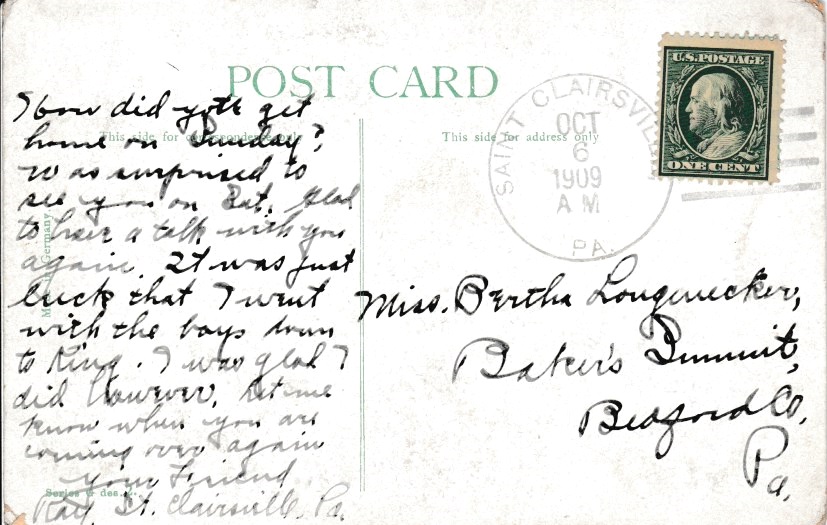 POST CARD
This side for correspondence only
This side for address only
How did you get
home on Sunday?
Was surprised to
see you on Sat. Glad
to have a talk with you
again. It was just
luck that I went
with the boys down
to King. I was glad I
did however, let me
know when you are
coming over again
your Friend
Ray, St. Clairsville, Pa.
Series 6 des.
Germany
SAINT CLAIRSVILLE
OCT
6
1909
A M
PA.
U.S. POSTAGE
ONE CENT
Miss. Bertha Longenecker,
Baker's Summit,
Bedford Co,
Pa.